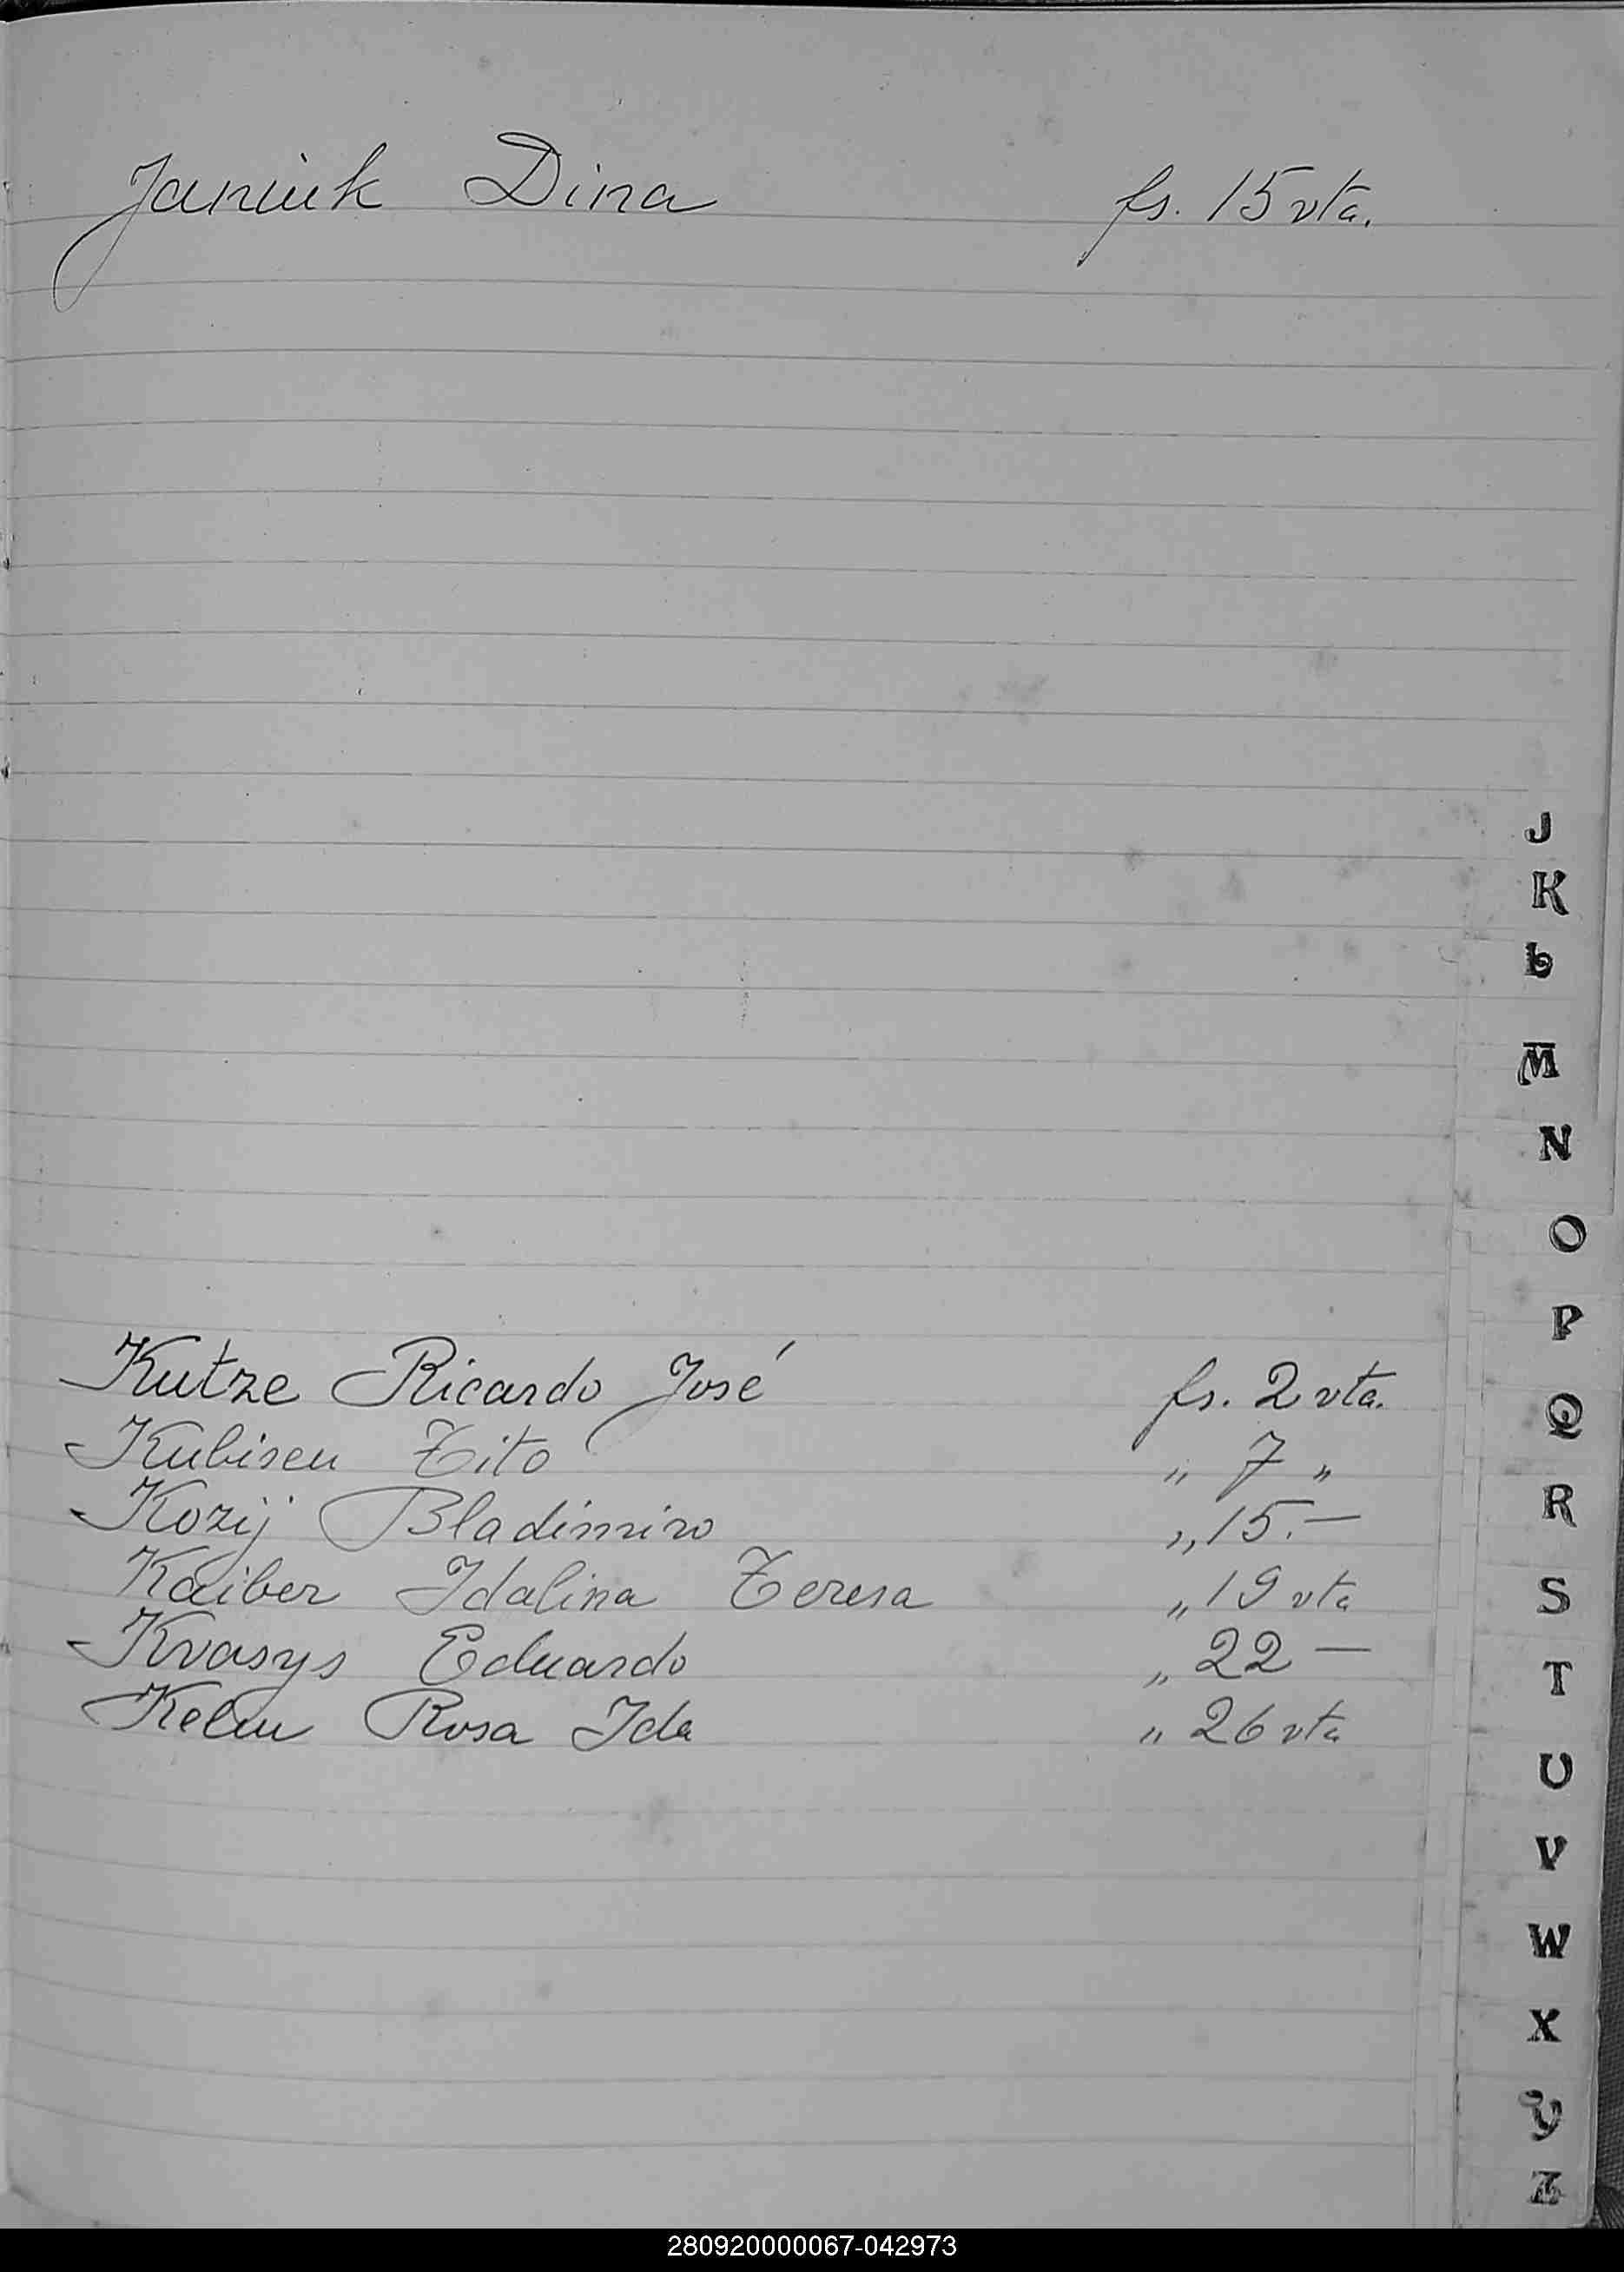 Janiuk Dina fs. 15 vta.
J
K
L
M
N
O
P
Kutze Ricardo José fs. 2 vta.
Q
Kubiseu Tito " 7 "
Kozij Bladimiro " 15.—
R
Kaiber Idalina Teresa " 19 vta
S
Kvasys Eduardo " 22 —
T
Kelm Rosa Ida " 26 vta
U
V
W
X
Y
Z
280920000067-042973